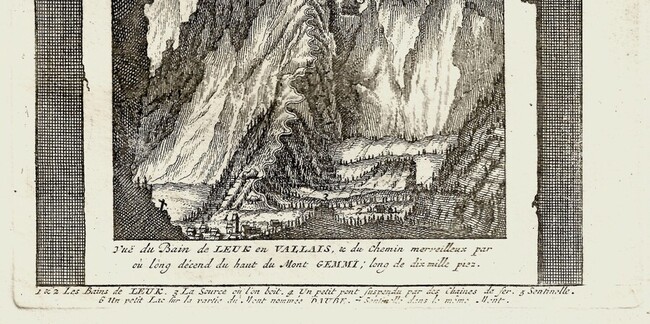 Vuë du Bain de LEUK en VALLAIS, & du Chemin merveilleux par
où l'ong décend du haut du Mont GEMMI; long de dix mille piez.
1 & 2 Les Bains de LEUK. 3 La Source où l'on boit. 4 Un petit pont suspendu par des Chaines de fer. 5 Sentinelle.
6 Un petit Lac sur la partie du Mont nommée DAUBE. 7 Sentinelle dans le même Mont.